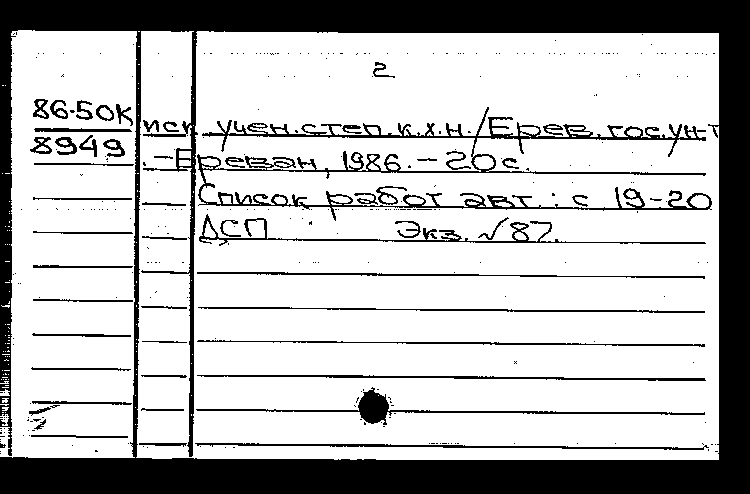 2
86-50К иск. учен. степ. к.х.н. / Ерев. гос. ун-т
8949 . – Ереван, 1986. – 20 с.
Список работ авт.: с 19-20
ДСП Экз. √ 87.